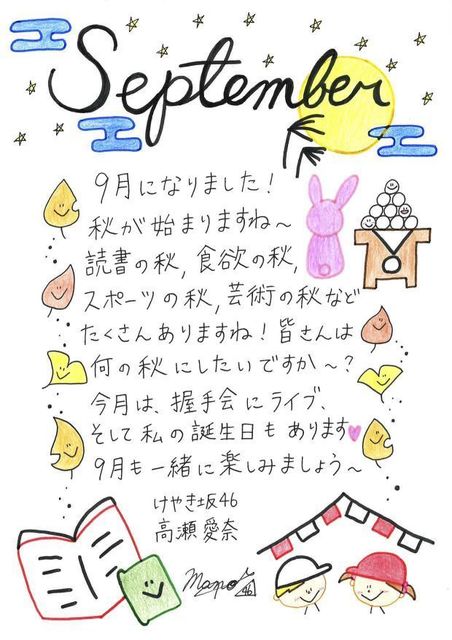 September
9月になりました!
秋が始まりますね〜
読書の秋,食欲の秋,
スポーツの秋,芸術の秋など
たくさんありますね!皆さんは
何の秋にしたいですか〜?
今月は、握手会にライブ、
そして私の誕生日もあります
9月も一緒に楽しみましょう〜
けやき坂46
高瀬愛奈
46